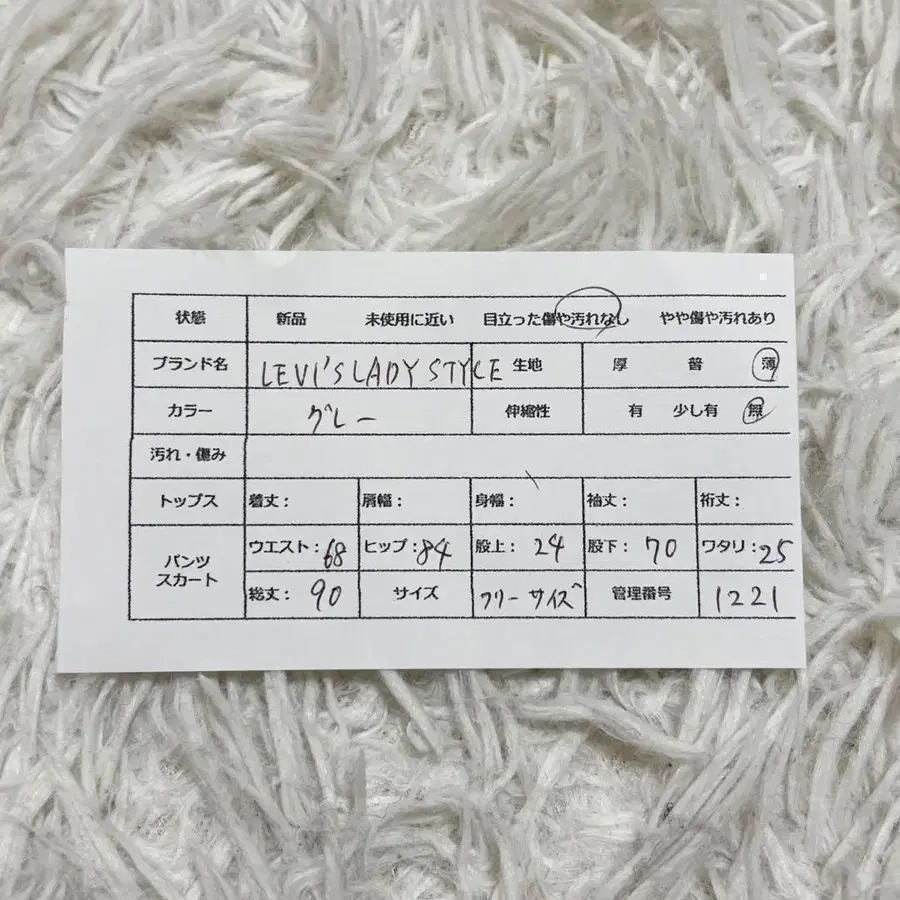 状態 新品 未使用に近い 目立った傷や汚れなし やや傷や汚れあり
ブランド名 LEVI'S LADY STYLE 生地 厚 普 薄
カラー グレー 伸縮性 有 少し有 無
汚れ・傷み
トップス 着丈: 肩幅: 身幅: 袖丈: 裄丈:
パンツ スカート ウエスト:68 ヒップ:84 股上:24 股下:70 ワタリ:25
総丈:90 サイズ フリーサイズ 管理番号 1221